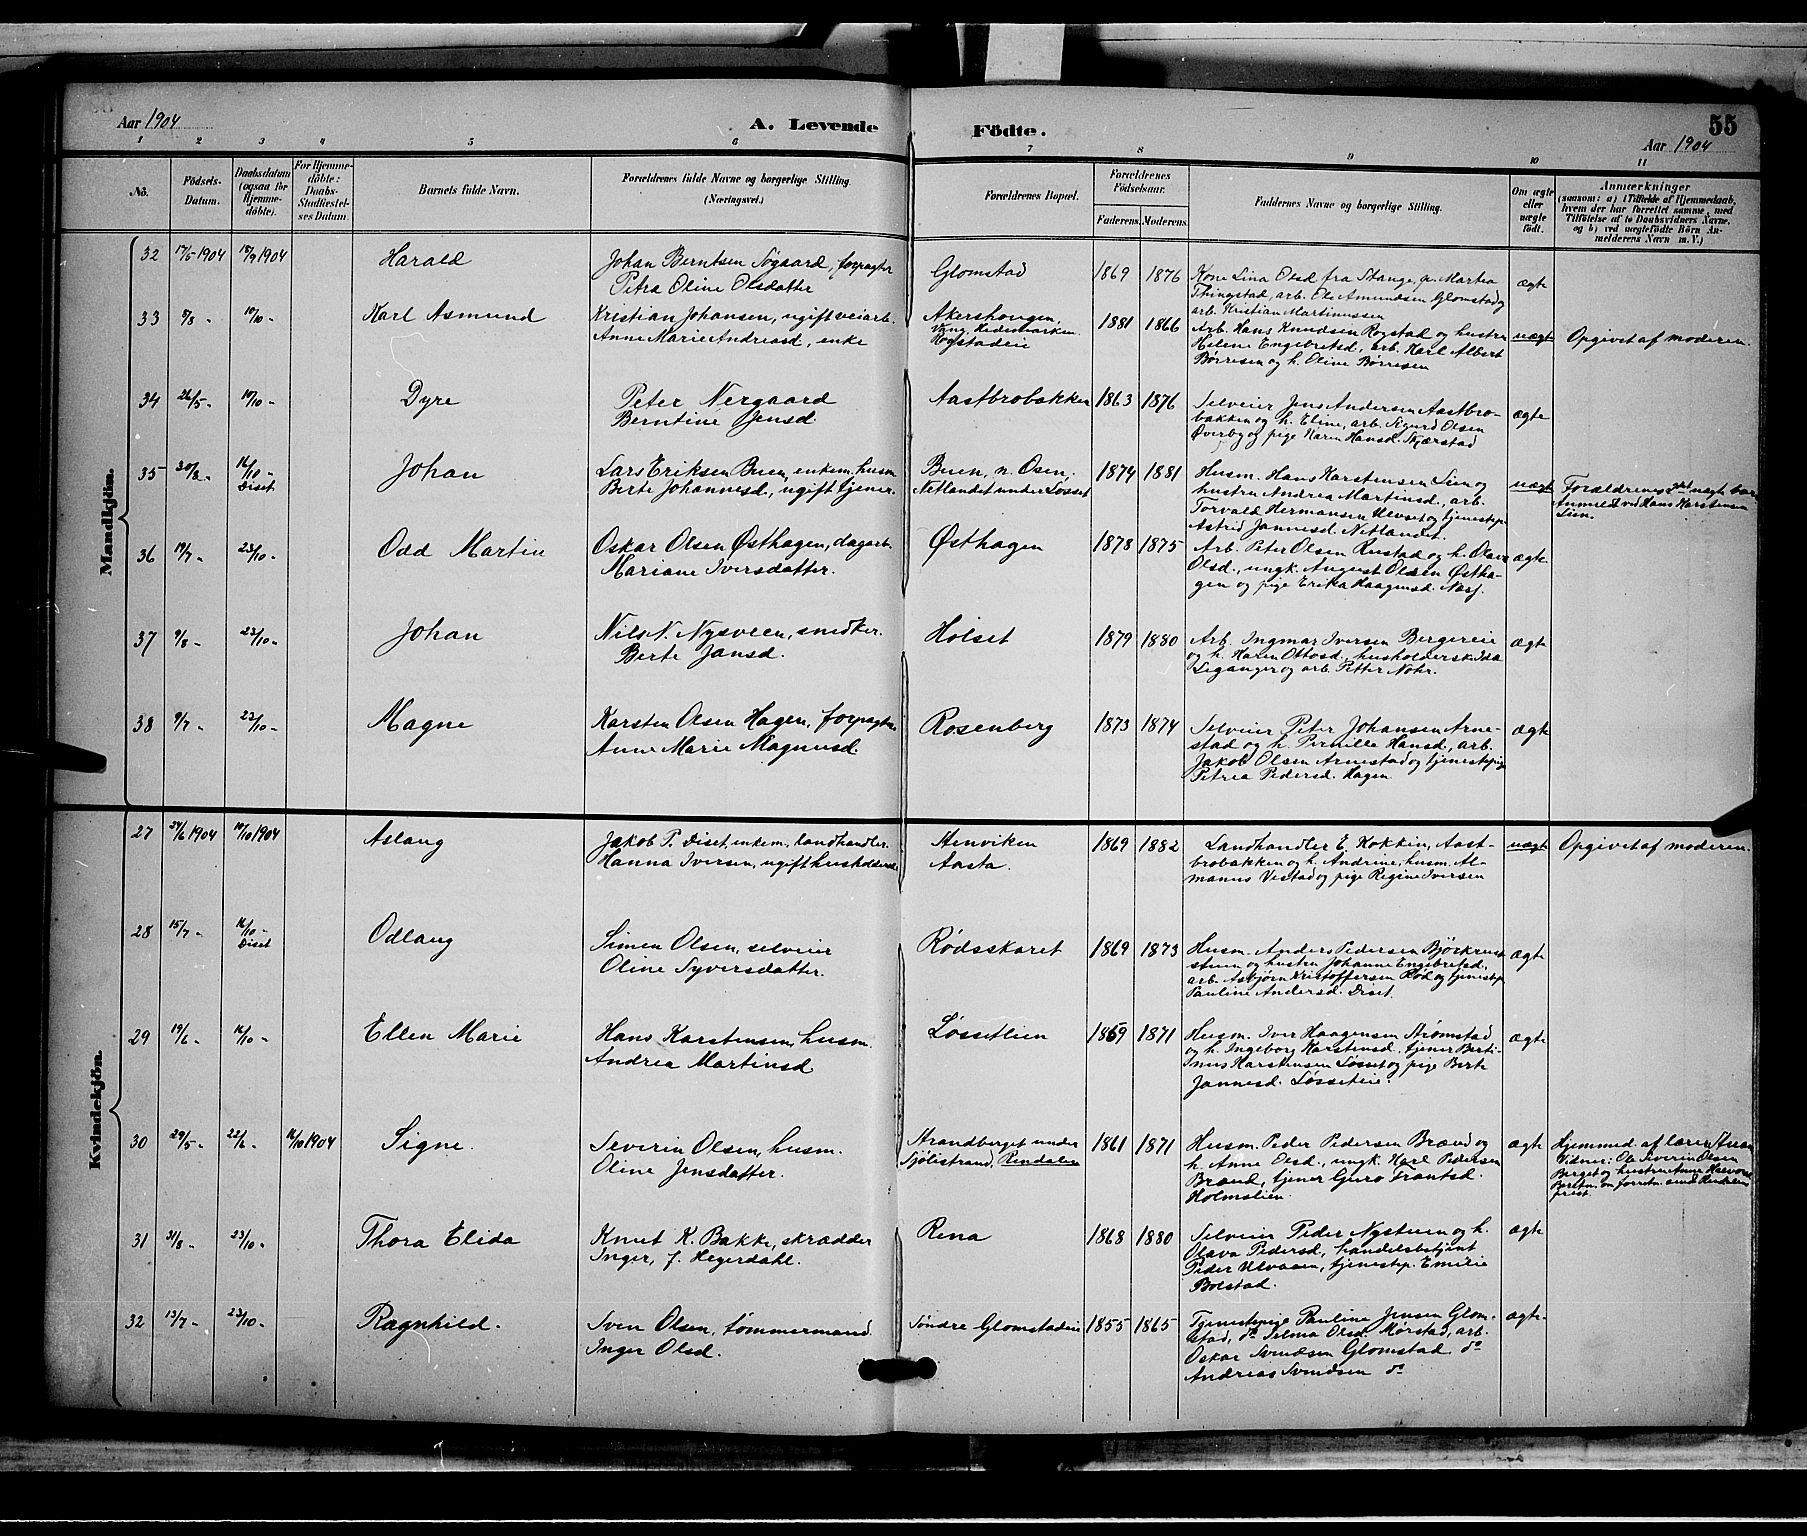 Aar 1904
A. Levende
Födte.
55
Aar 1904
1 2 3 4 5 6 7 8 9 10 11
No.
Födsels-Datum.
Daabsdatum (ogsaa for Hjemme-döbte).
For Hjemme-döbte: Daabs-Stadfæstel-ses Datum.
Barnets fulde Navn.
Forældrenes fulde Navne og borgerlige Stilling. (Næringsvei.)
Forældrenes Bopæl.
Forældrenes Födselsaar.
Faderens. Moderens.
Faddernes Navne og borgerlige Stilling.
Om ægte eller uægte födt.
Anmærkninger
(saasom: a) i Tilfælde af Hjemmedaab, hvem der har forrettet samme, med Tilföielse af to Daabsvidners Navne, og b) ved uægtefödte Börn Anmelderens Navn m. V.)
Mandkjön.
32 17/5 1904 18/9 1904 Harald
Johan Berntsen Søgaard, forpagter
Petra Oline Olsdatter
Glomstad 1869 1876
Kone Lina Olsd fra Stange, p. Martea
Thingstad, arb. Ole Amundsen Glomstad og
arb. Kristian Martinussen
ægte
33 5/8 - 10/10 - Karl Asmund
Kristian Johansen, ugift veiarb.
Anne Marie Andreasd, enke
Akershaugen,
Vang, Hedemarken
Rogstadeie
1881 1866
Arb. Hans Knudsen Rogstad og hustru
Helene Engebretsd, arb. Karl Albert
Børresen og h. Oline Børresen
uægte Opgivet af moderen.
34 26/5 - 10/10 - Dyre
Peter Nergaard
Berntine Jensd
Aastbrobakken 1863 1876
Selveier Jens Andersen Aastbro-
bakken og h. Eline, arb. Sigurd Olsen
Øverby og pige Karen Hansd. Skjærstad
ægte
35 20/8 - 16/10 - Diset Johan
Lars Eriksen Buen, enkem. husm
Berte Johannesd, ugift tjener
Buen, n. Osen,
Netlandet under Løsset
1874 1881
Husm. Hans Karstensen Lien og
hustru Andrea Martinsd, arb.
Torvald Hermansen Ulvset og tjenestep.
Astrid Jannesd. Netlandet.
uægte Forældrenes 2det uægt. barn
Anmeldt ved Hans Karstensen
Lien.
36 19/7 - 23/10 - Odd Martin
Oskar Olsen Østhagen, dagarb.
Mariane Iversdatter.
Østhagen 1878 1875
Arb. Peter Olsen Rustad og h. Olava
Olsd., ungk. August Olsen Østha-
gen og pige Erika Haagensd. Næsj.
ægte
37 9/8 - 23/10 - Johan
Nils N. Nysveen, snedker.
Berte Jansd.
Holset 1879 1880
Arb. Ingmar Iversen Bergereie
og h. Karen Ottosd., husholdersk. Ida
Leganger og arb. Petter Nohr.
ægte
38 9/7 - 23/10 - Magne
Karsten Olsen Hagen, forpagter
Anne Marie Magnusd.
Rosenberg 1873 1874
Selveier Peter Johansen Arne-
stad og h. Pernille Hansd., arb.
Jakob Olsen Arnestad og tjenestepige
Petrea Pedersd. Hagen
ægte
Kvindekjön.
27 24/6 1904 10/10 1904 Aslaug
Jakob P. Diset, enkem., landhandler.
Hanna Iversen, ugift husholderske
Stenviken
Aasta.
1869 1882
Landhandler E. Kokkin, Aast-
brobakken og h. Andrine, husm. Al-
manus Vestad og pige Regine Iversen
uægte Opgivet af moderen.
28 15/7 - 16/10 - Diset Odlaug
Simen Olsen, selveier
Oline Syversdatter.
Rødsskaret 1869 1873
Husm. Anders Pedersen Bjørkeneset-
steen og hustru Johanne Engebretsd.,
arb. Asbjørn Kristoffersen Rød og tjenestep.
Pauline Andersd. Diset.
ægte
29 19/6 - 16/10 - Ellen Marie
Hans Karstensen, husm.
Andrea Martinsd
Løssetlien 1869 1871
Husm. Iver Haagensen Strømstad
og h. Ingeborg Karstensd. tjener Berti-
nus Karstensen Løsset og pige Berte
Jannesd. Løsseteie.
ægte
30 29/5 - 22/6 - 16/10 1904 Signe.
Severin Olsen, husm.
Oline Jensdatter.
Strandberget under
Sjølistrand, Rendalen
1861 1871
Husm. Peder Pedersen Brænd og
h. Anne Olsd., ungk. Karl Pedersen
Brænd, tjener Guro Frantsd.
Holmslien.
ægte Hjemmed. af lærer
Vidner: Ole Severin Olsen
Berget og hustru Anne
31 31/8 - 23/10 - Thora Elida
Knut K. Bakke, skrædder
Inger, f. Hegerdahl.
Rena 1868 1880
Selveier Peder Nysteen og h.
Olava Pedersd, handelsbetjent
Peder Ulvaaen, tjenestep. Emilie
Bolstad.
ægte
32 13/7 - 23/10 - Ragnhild.
Sven Olsen, tømmermand.
Inger Olsd.
Søndre Glomstadeie 1855 1865
Tjenestepige Pauline Jensen Glom-
stad, do Selma Olsd. Mørstad, arb.
Oskar Svendsen Glomstad, do
Andreas Svendsen do
ægte.